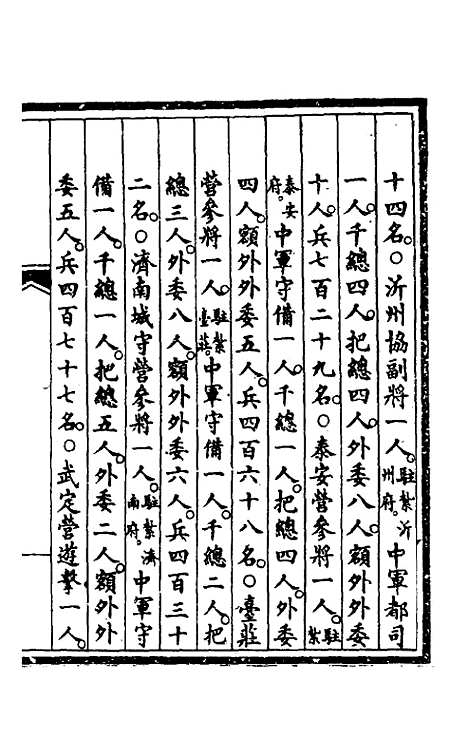 十四名。○沂州協副將一人。駐紮沂州府。中軍都司
一人。千總四人。把總四人。外委八人。額外外委
十人。兵七百二十九名。○泰安營參將一人。駐紮
泰安府。中軍守備一人。千總一人。把總四人。外委
四人。額外外委五人。兵四百六十八名。○臺莊
營參將一人。駐紮臺莊。中軍守備一人。千總二人。把
總三人。外委八人。額外外委六人。兵四百三十
二名。○濟南城守營參將一人。駐紮濟南府。中軍守
備一人。千總一人。把總五人。外委二人。額外外
委五人。兵四百七十七名。○武定營遊擊一人。